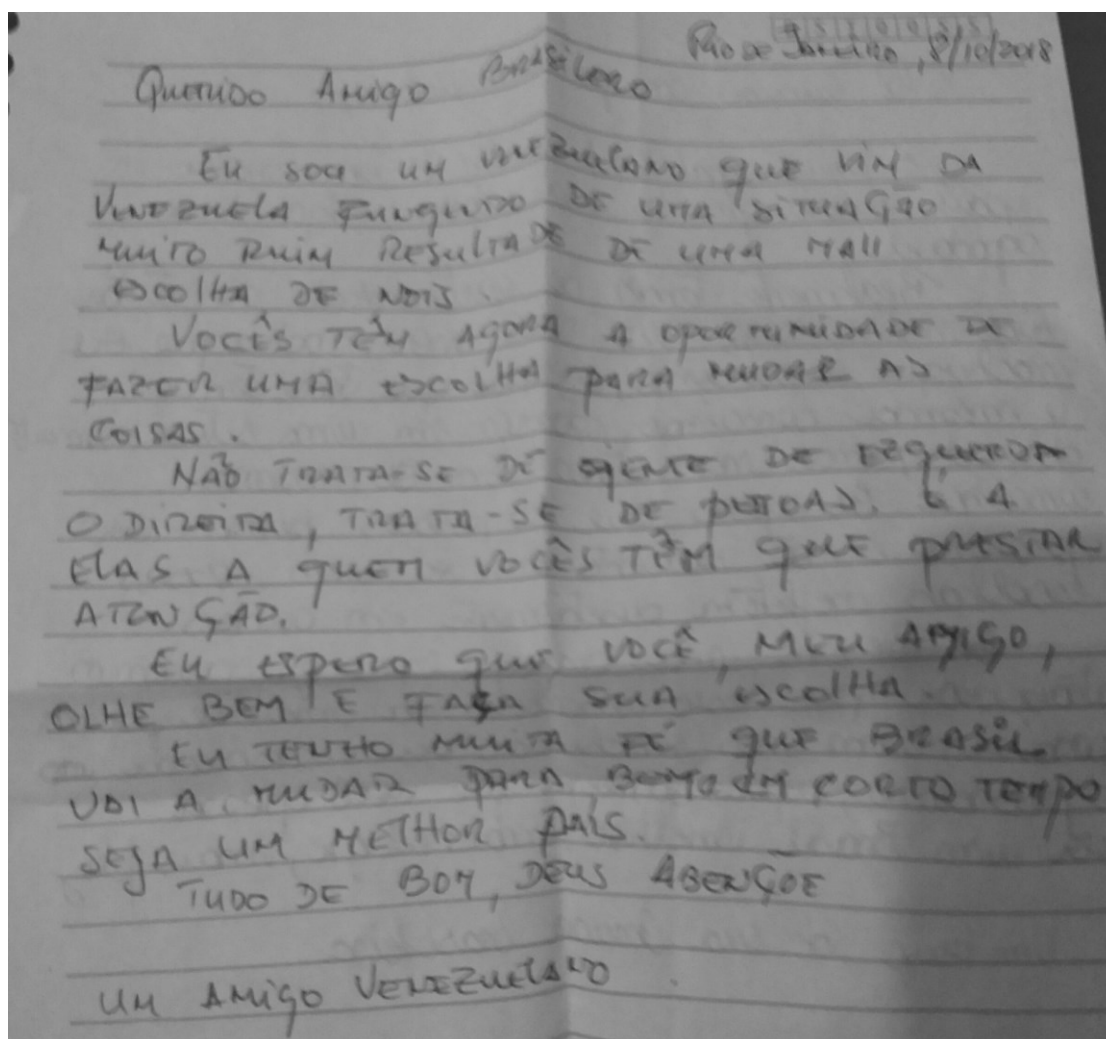 Rio de Janeiro, 8/10/2018
Querido Amigo Brasilero
Eu sou um venezuelano que vim da
Venezuela funguido de uma situação
muito ruim resultade de uma mall
escolha de nois.
Vocês têm agora a oportunidade de
fazer uma escolha para mudar as
coisas.
Não trata-se de gente de ezquerda
o direita, trata-se de pessoas. é a
elas a quem vocês têm que prestar
atenção.
Eu espero que você, meu amigo,
olhe bem e faça sua escolha.
Eu tenho muita fé que Brasil
vai a mudar para bem em corto tempo
seja um melhor país.
Tudo de bom, Deus abençõe
Um amigo venezuelano.